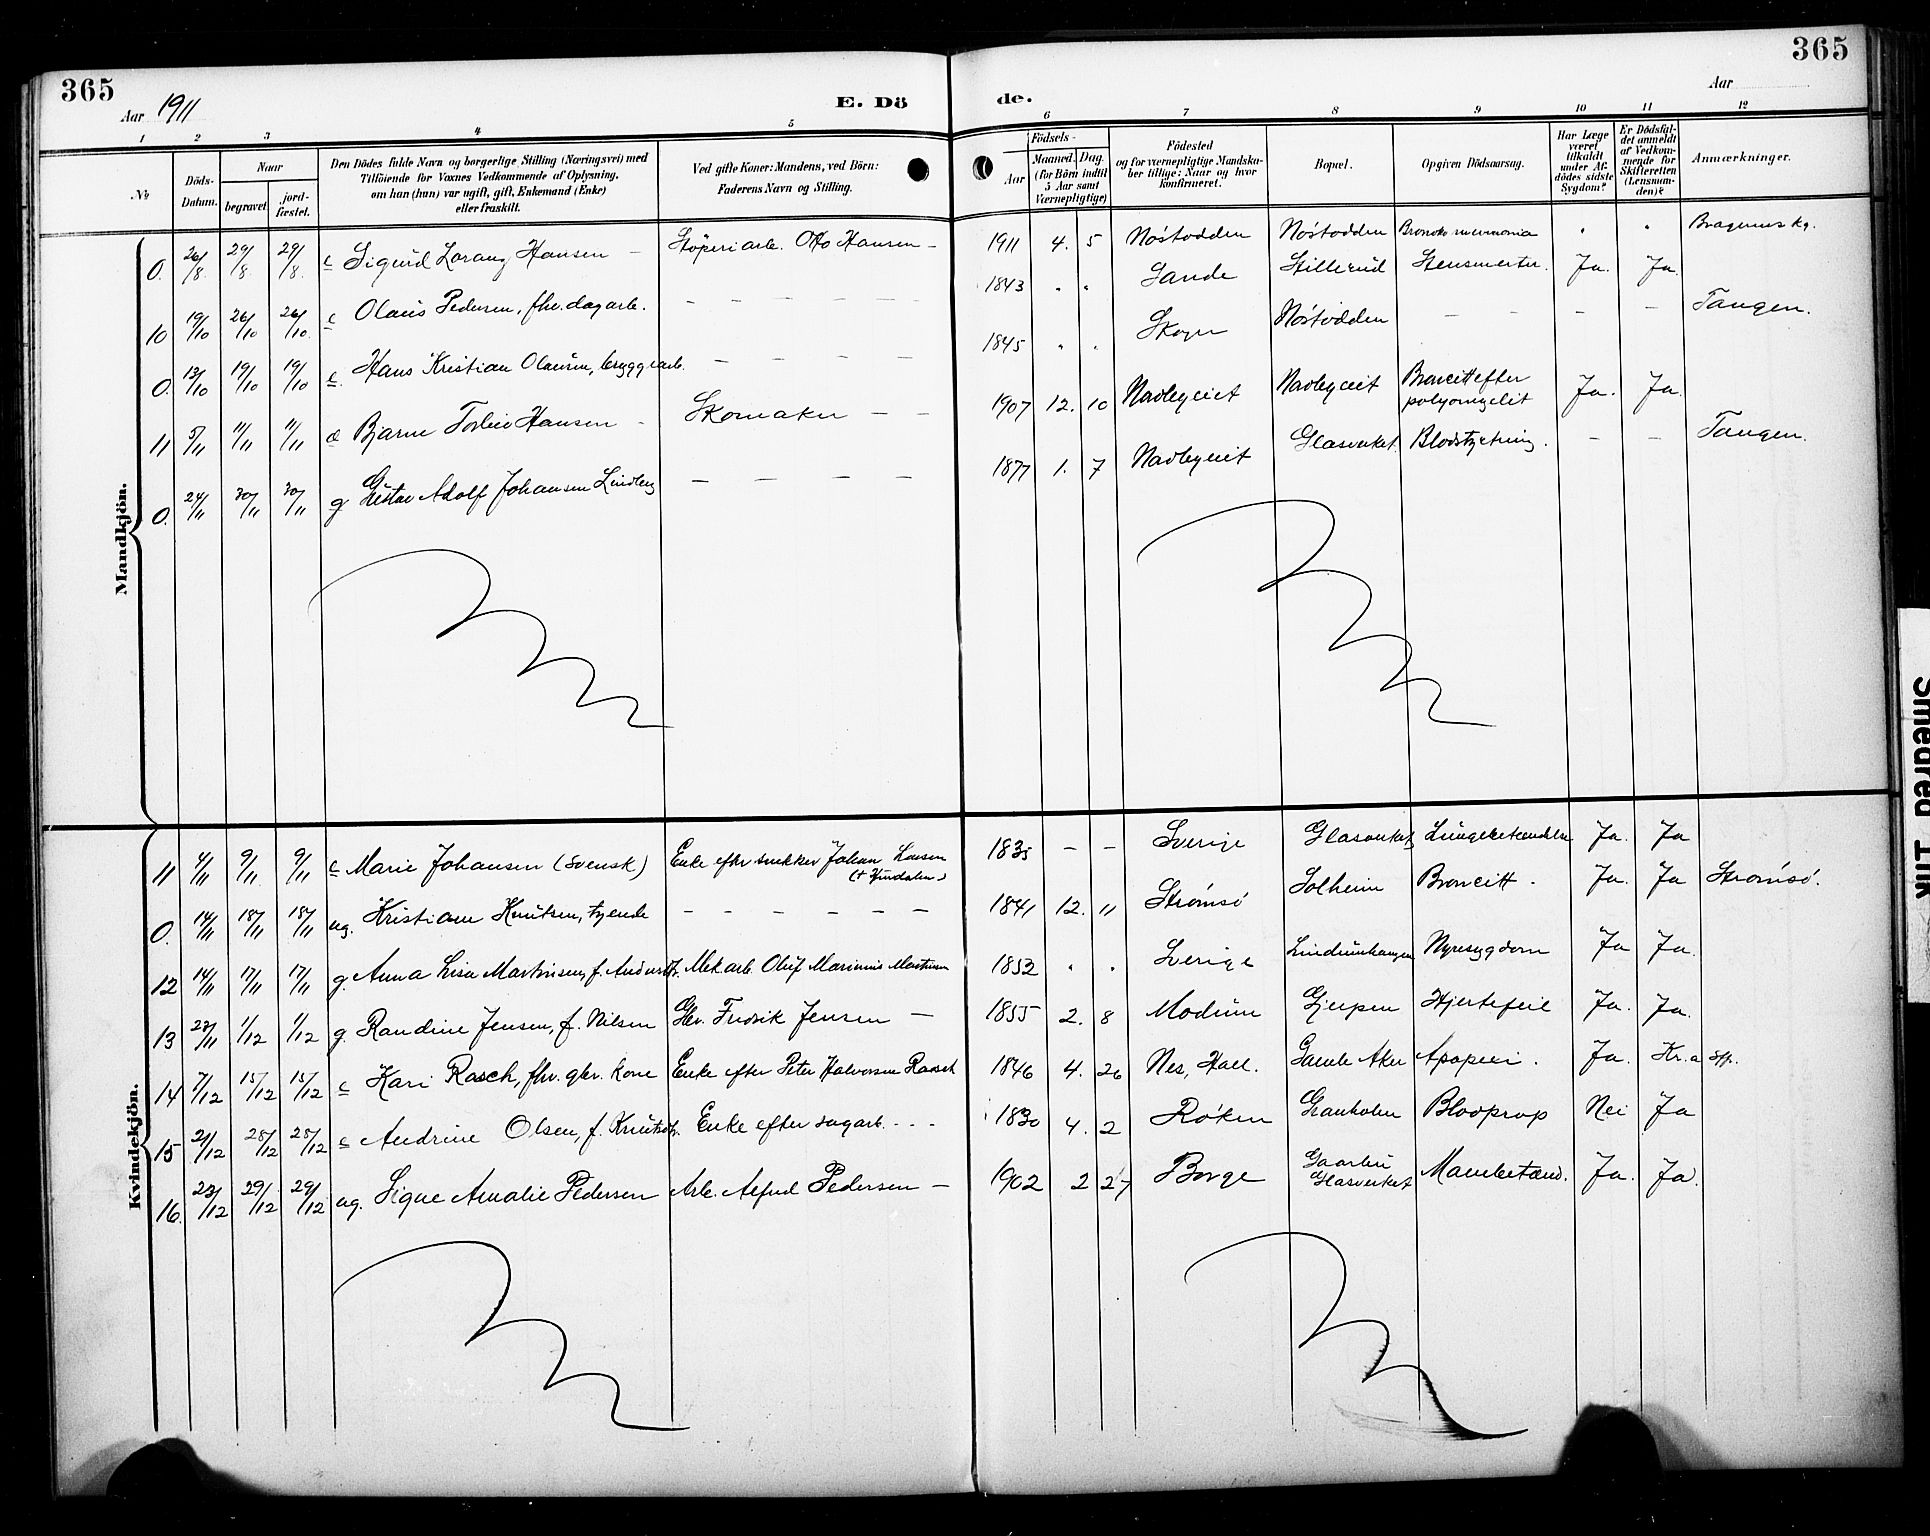 365
365
Aar 1911
E. Dö
de.
Aar
1 2 3 4 5 6 7 8 9 10 11 12
No
Döds-Datum.
Naar
begravet.
jord-fæstet.
Den Dödes fulde Navn og borgerlige Stilling (Næringsvei) med
Tilföiende for Voxnes Vedkommende af Oplysning,
om han (hun) var ugift, gift, Enkemand (Enke)
eller fraskilt.
Ved gifte Koner: Mandens, ved Börn:
Faderens Navn og Stilling.
Födsels-
Aar
Maaned. Dag.
(for Börn indtil
5 Aar samt
Værnepligtige)
Födested
og for værnepligtige Mandska-
ber tillige: Naar og hvor
konfirmeret.
Bopæl.
Opgiven Dödsaarsag.
Har Læge
været
tilkaldt
under Af-
dödes sidste
Sygdom?
Er Dödsfal-
det anmeldt
af Vedkom-
mende for
Skifteretten
(Lensman-
den)?
Anmærkninger.
Mandkjön.
0. 26/8 29/8. 29/8. c Sigurd Lorang Hansen – Støperiarb. Otto Hansen – 1911 4. 5 Nøstodden Nøstodden Bronkopneumonia " " Bragernes kg.
10 19/10 26/10 26/10. c Olaus Pedersen, fhv. dagarb. – – – – – 1843 " " Sande Stillerud Stensmerter. Ja. Ja.
0. 13/10 19/10 19/10 c. Hans Kristian Olausen, bryggearb. – – – – 1845 " " Skoger Nøstodden – – – – Tangen.
11 5/11 11/11 11/11 c Bjarne Torleiv Hansen – Skomaker – – 1907 12. 10 Navlegeiet Navlegeiet Broncitt efter polyomyelit Ja. Ja.
0. 24/11 30/11 30/11 g Gustav Adolf Johansen Lindberg – – – – 1877 1. 7 Navlegeiet Glasverket Blodstyrtning. – – Tangen.
Kvindekjön.
11 4/11 9/11 9/11 c Marie Johansen (svensk) Enke efter snekker Johan 1835 – – Sverige Glasverket Lungebetændelse Ja. Ja
0. 14/11 18/11 18/11 ug. Kristiane Knutsen, tyende – – – – – – 1841 12. 11 Strømsø Solheim Broncitt. Ja. Ja Strømsø.
12 14/11 17/11 17/11 g. Anna Lisa Martinsen, f. Mek. arb. Oluf Marinius Martinsen 1852 " " Sverige Nyresygdom Ja Ja.
13 28/11 1/12 1/12 g. Randine Jensen, f. Nilsen Gbr. Fredrik Jensen – 1855 2. 8 Modum Gjerpen Hjertefeil Ja. Ja.
14 7/12 15/12 15/12 c Kari Rasch, fhv. gbr. kone Enke efter Peter Halvorsen Rasch 1846 4. 26 Nes, Hall. Gamle Aker Apoplexi. Ja. Kr.a
15 21/12 28/12 28/12 c Andrine Olsen, f. Knutsdtr. Enke efter sagarb. – – – 1830 4. 2 Røken Granholen Blodprop Nei Ja
16. 23/12 29/12 29/12 ug. Signe Amalie Pedersen Arb. Alfred Pedersen – 1902 2 27 Borge Gaarbu Glasverket Ja. Ja.
Smeared Ink